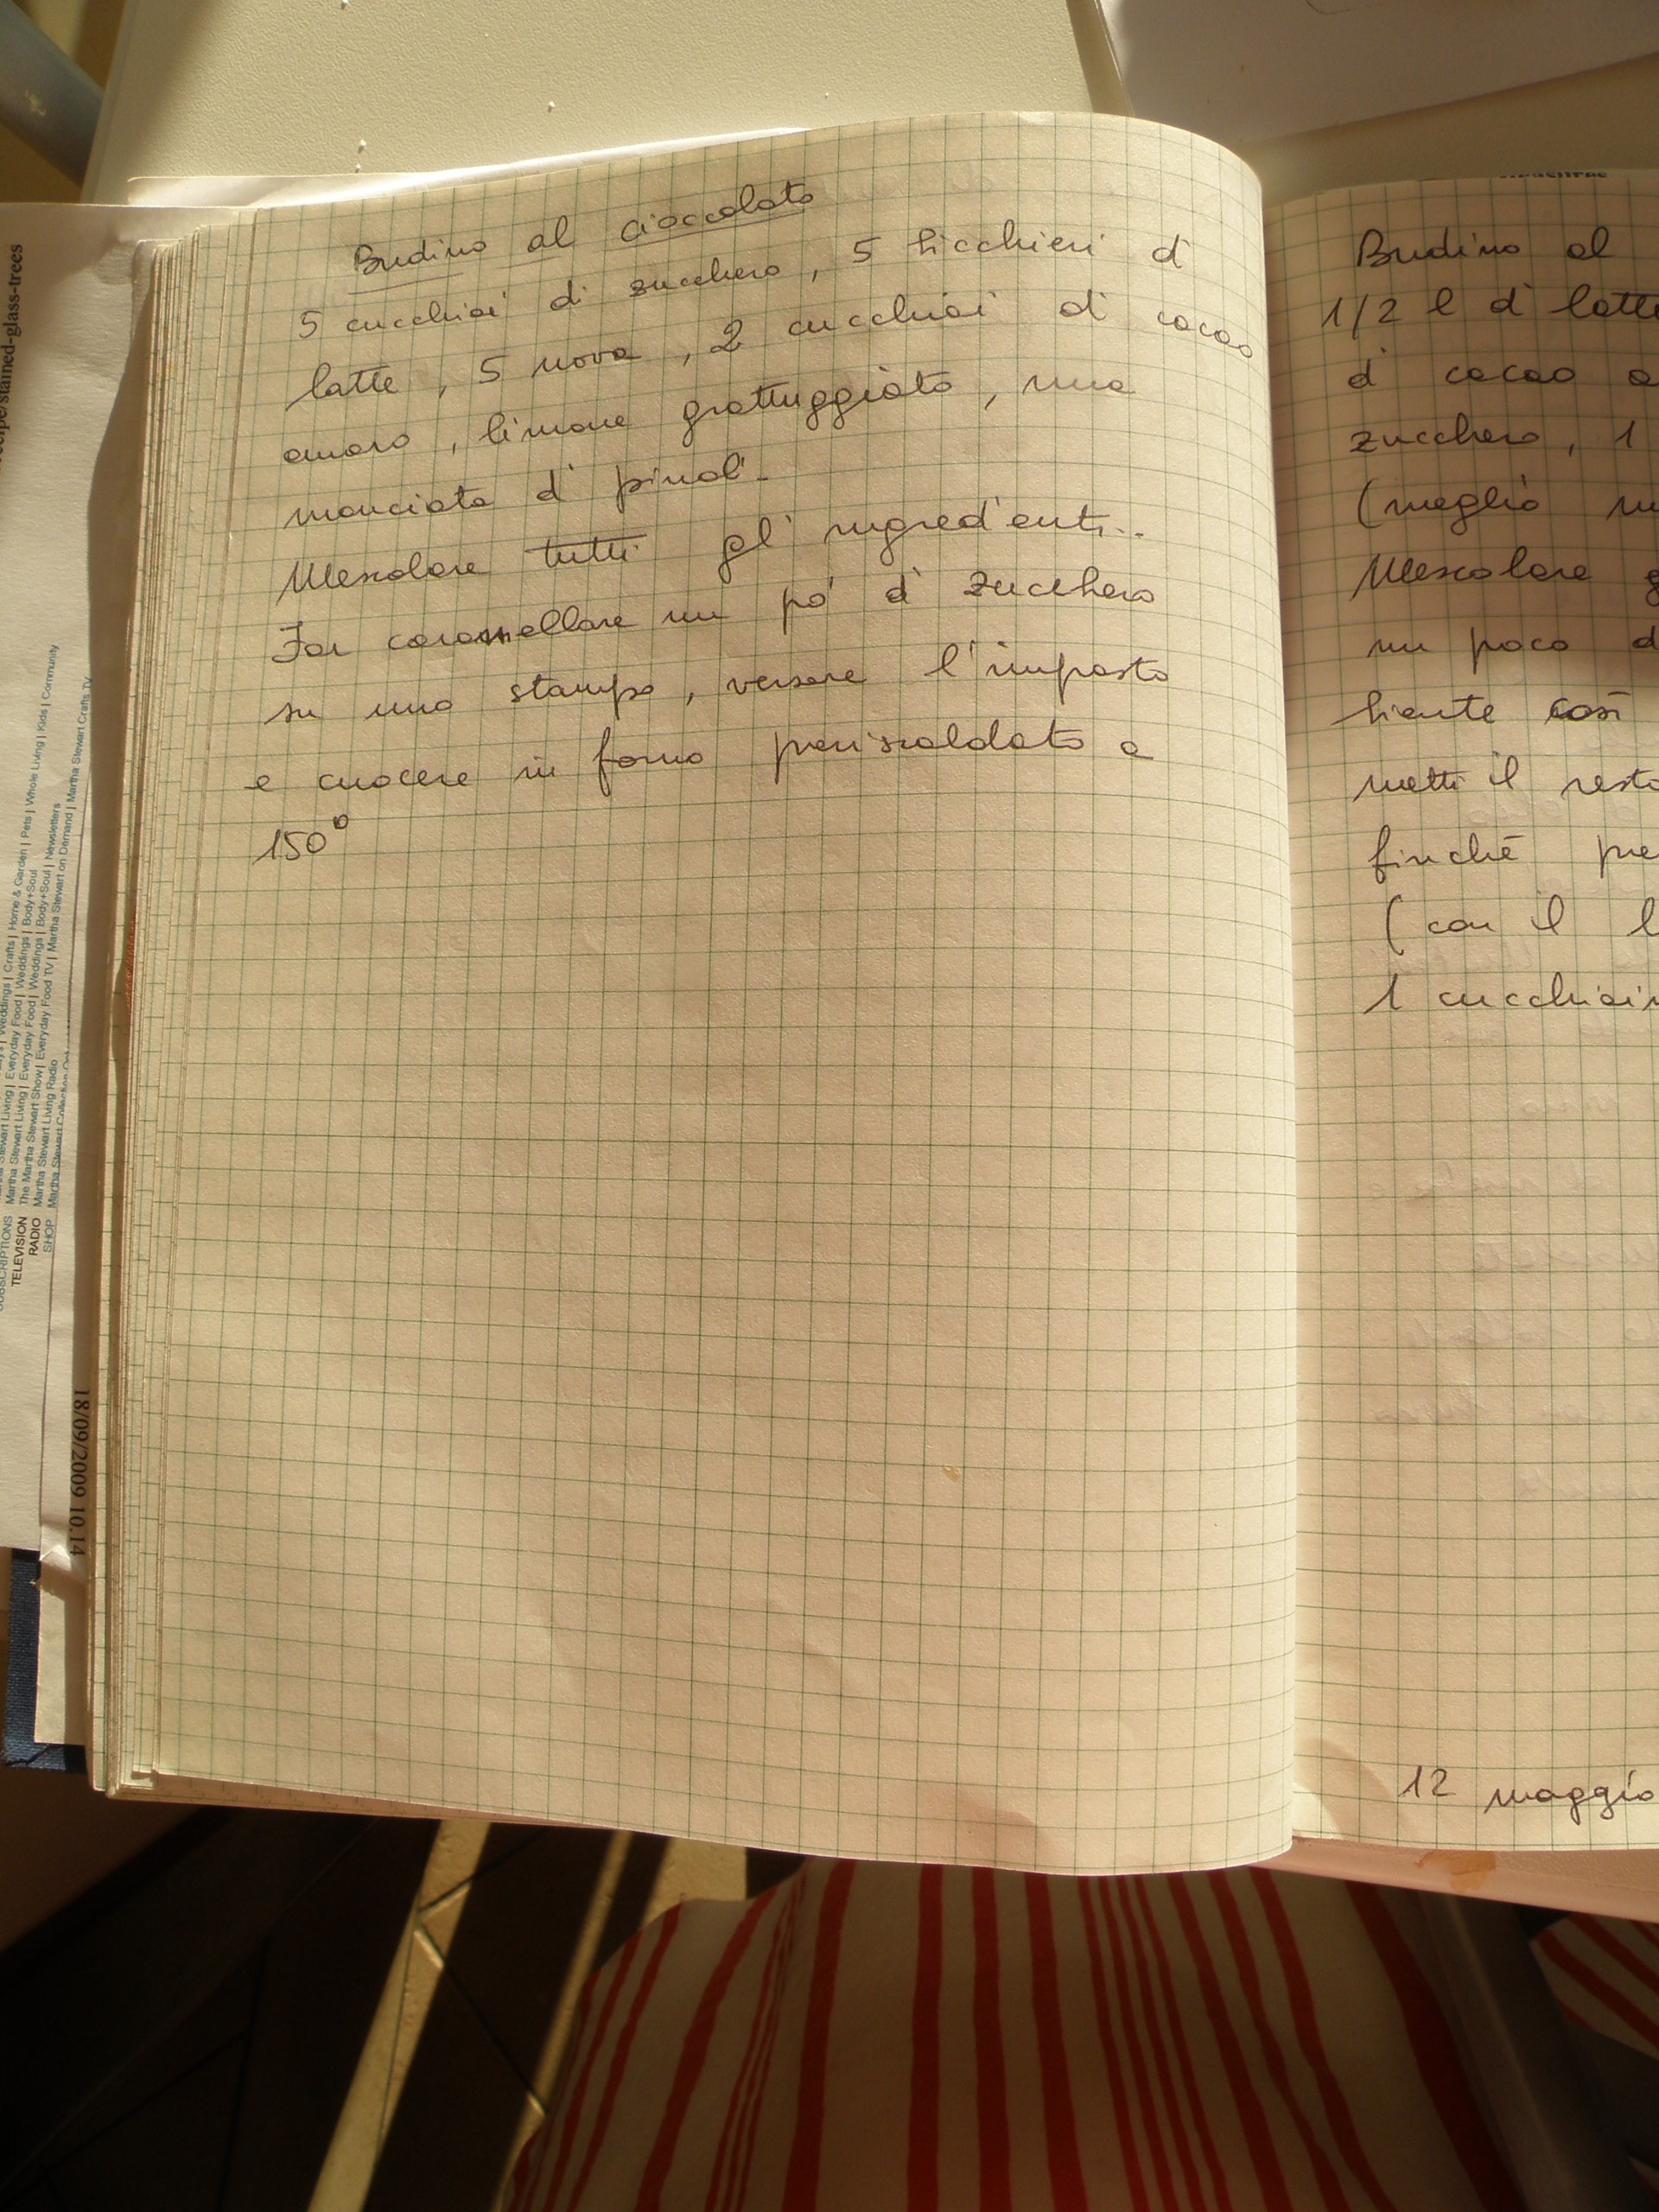 Budino al cioccolato
5 cucchiai di zucchero, 5 bicchieri di
latte, 5 uova, 2 cucchiai di cacao
amaro, limone grattuggiato, una
manciata di pinoli.
Mescolare tutti gli ingredienti..
Far caramellare un po' di zucchero
su uno stampo, versare l'imposto
e cuocere in forno preriscaldato a
150°
Budino al
1/2 l di latte
di cacao a
zucchero, 1
(meglio
Mescolare g
un poco d
liente così
metti il resto
finché pre
(con il l
1 cucchiain
12 maggio
stained-glass-trees
Crafts | Home & Garden | Pets | Whole Living | Kids | Community
Martha Stewart Living | Everyday Food | Weddings | Body+Soul
SUBSCRIPTIONS Martha Stewart Living | Everyday Food | Weddings | Body+Soul | Newsletters
TELEVISION The Martha Stewart Show | Everyday Food TV | Martha Stewart on Demand | Martha Stewart Crafts TV
RADIO Martha Stewart Living Radio
SHOP Martha Stewart Collection
18/09/2009 10.14